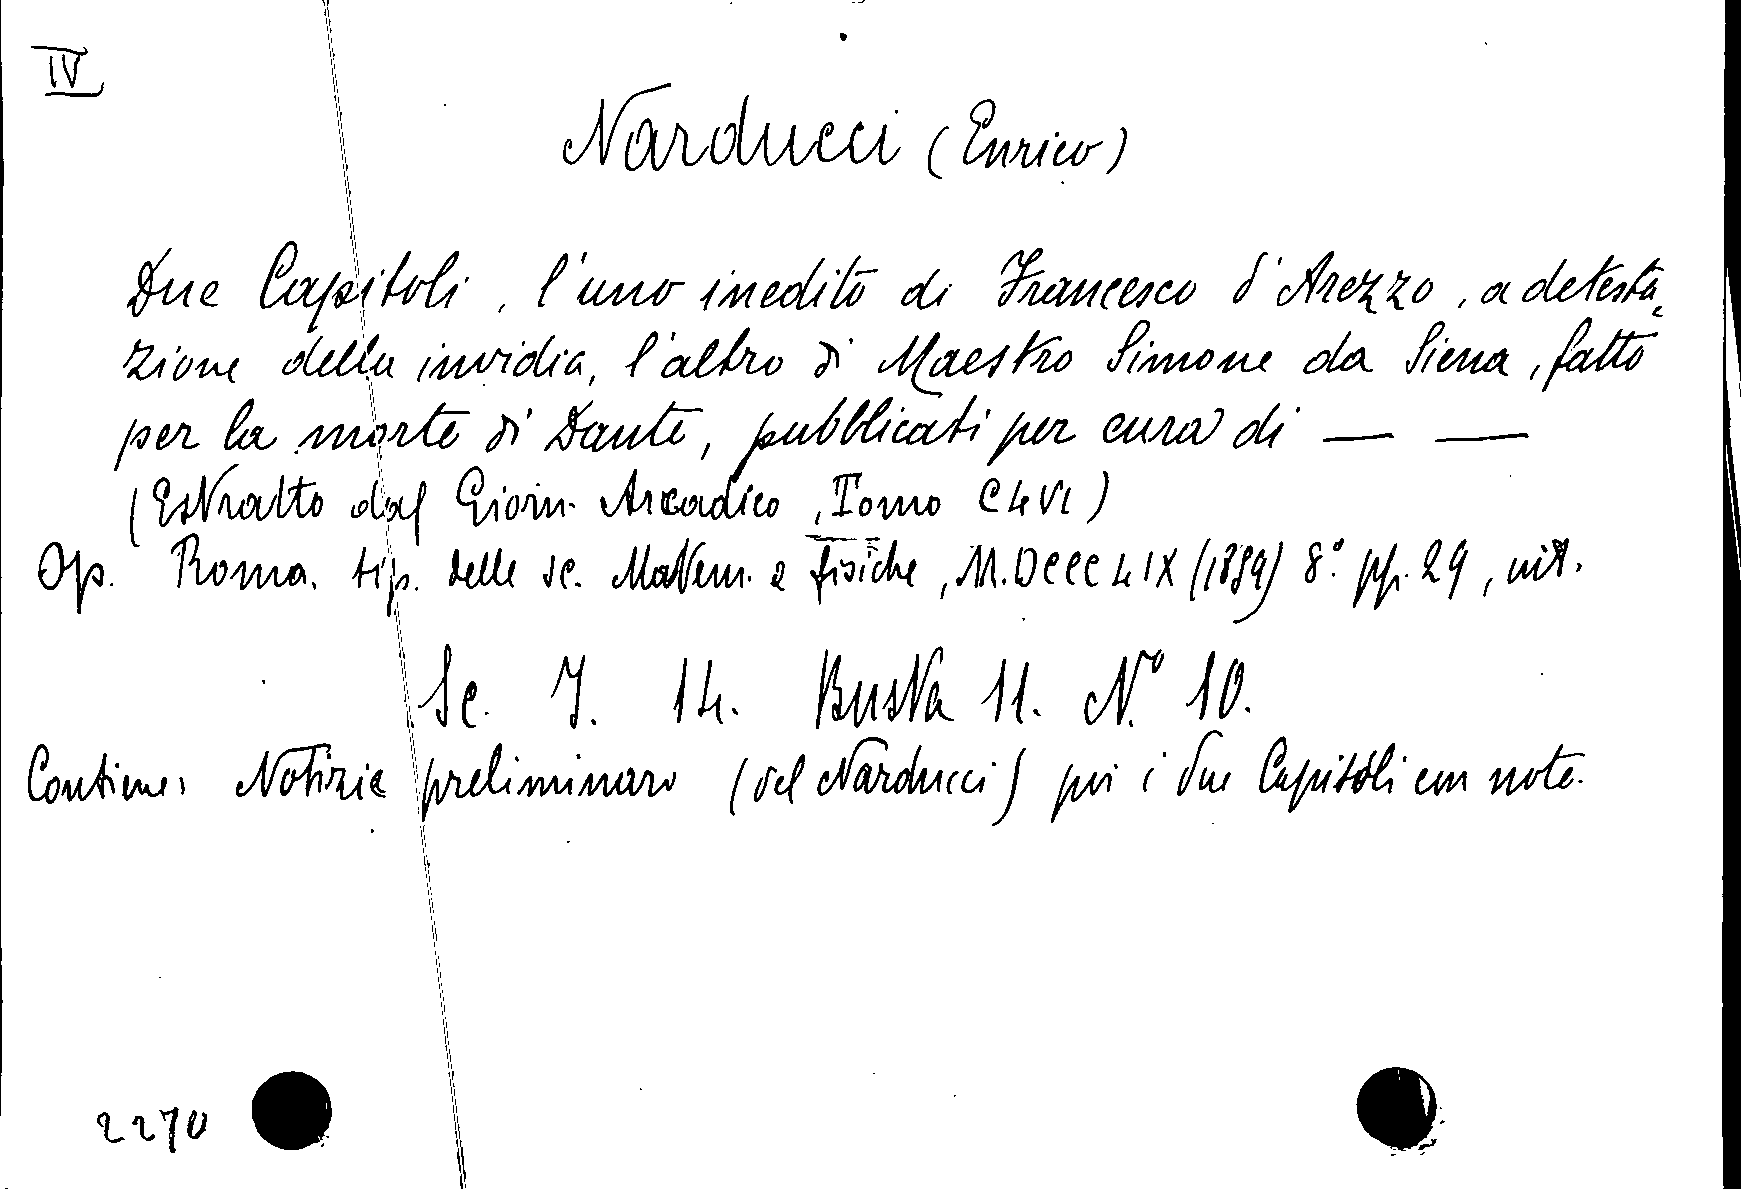 IV
Narducci (Enrico)
Due Capitoli, l'uno inedito di Francesco d'Arezzo, a detesta-
zione della invidia, l'altro di Maestro Simone da Siena, fatto
per la morte di Dante, pubblicati per cura di — —
(Estratto dal Giorn. Arcadico, Tomo CLVI)
Op. Roma. tip. delle sc. Matem. e fisiche, M.DCCCLIX (1859) 8.° pp. 29, nit.
Sc. I. 14. Busta 11. N.° 10.
Contiene: Notizia preliminare (del Narducci) poi i due Capitoli con note.
2270